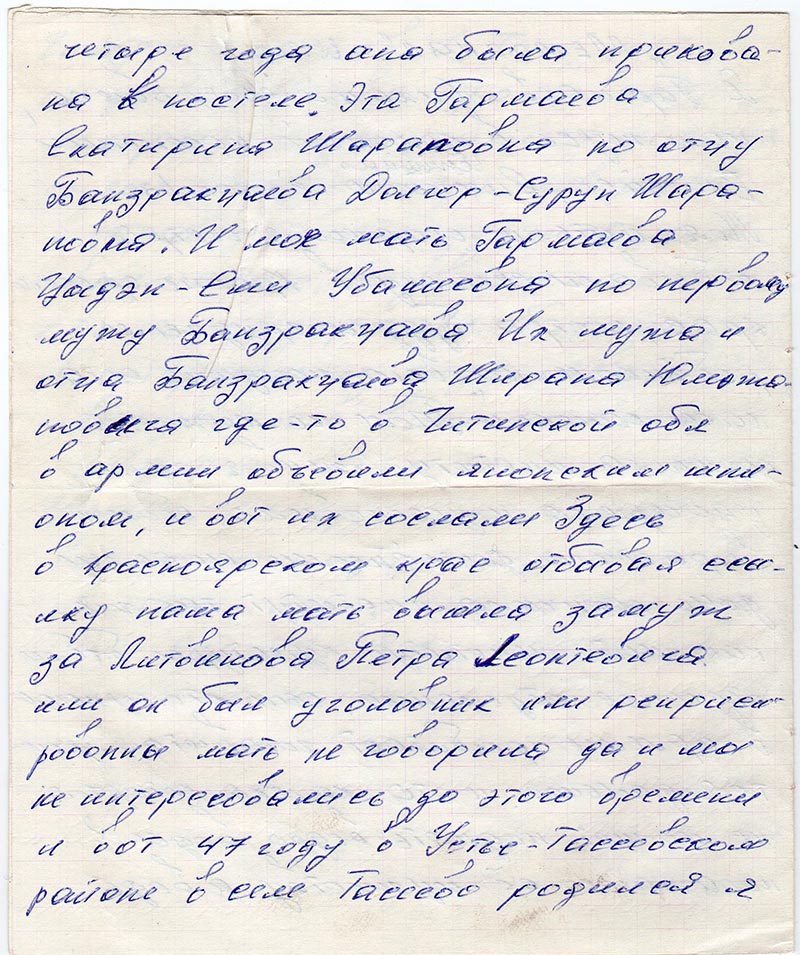 четыре года она была прикова-
на к постеле. Эта Гармаева
Екатирина Шараповна по отцу
Банзаракцаева Долгор-Сурун Шара-
повна. И моя мать Гармаева
Убашиевна по первому
мужу Банзракцаева Их мужа и
отца Банзракцаева Шарапа
где-то в Читинской обл
в армии объевили японским шпи-
оном, и вот их сослали Здесь
в Красноярском крае отбывая ссы-
лку наша мать вышла замуж
за Литовникова Петра Леонтевича
или он был уголовник или реприсси-
рованны мать не говорила да и мы
не интересовались до этого времени
и вот 47 году в Устье-Тассевском
районе в селе Тассево родился я